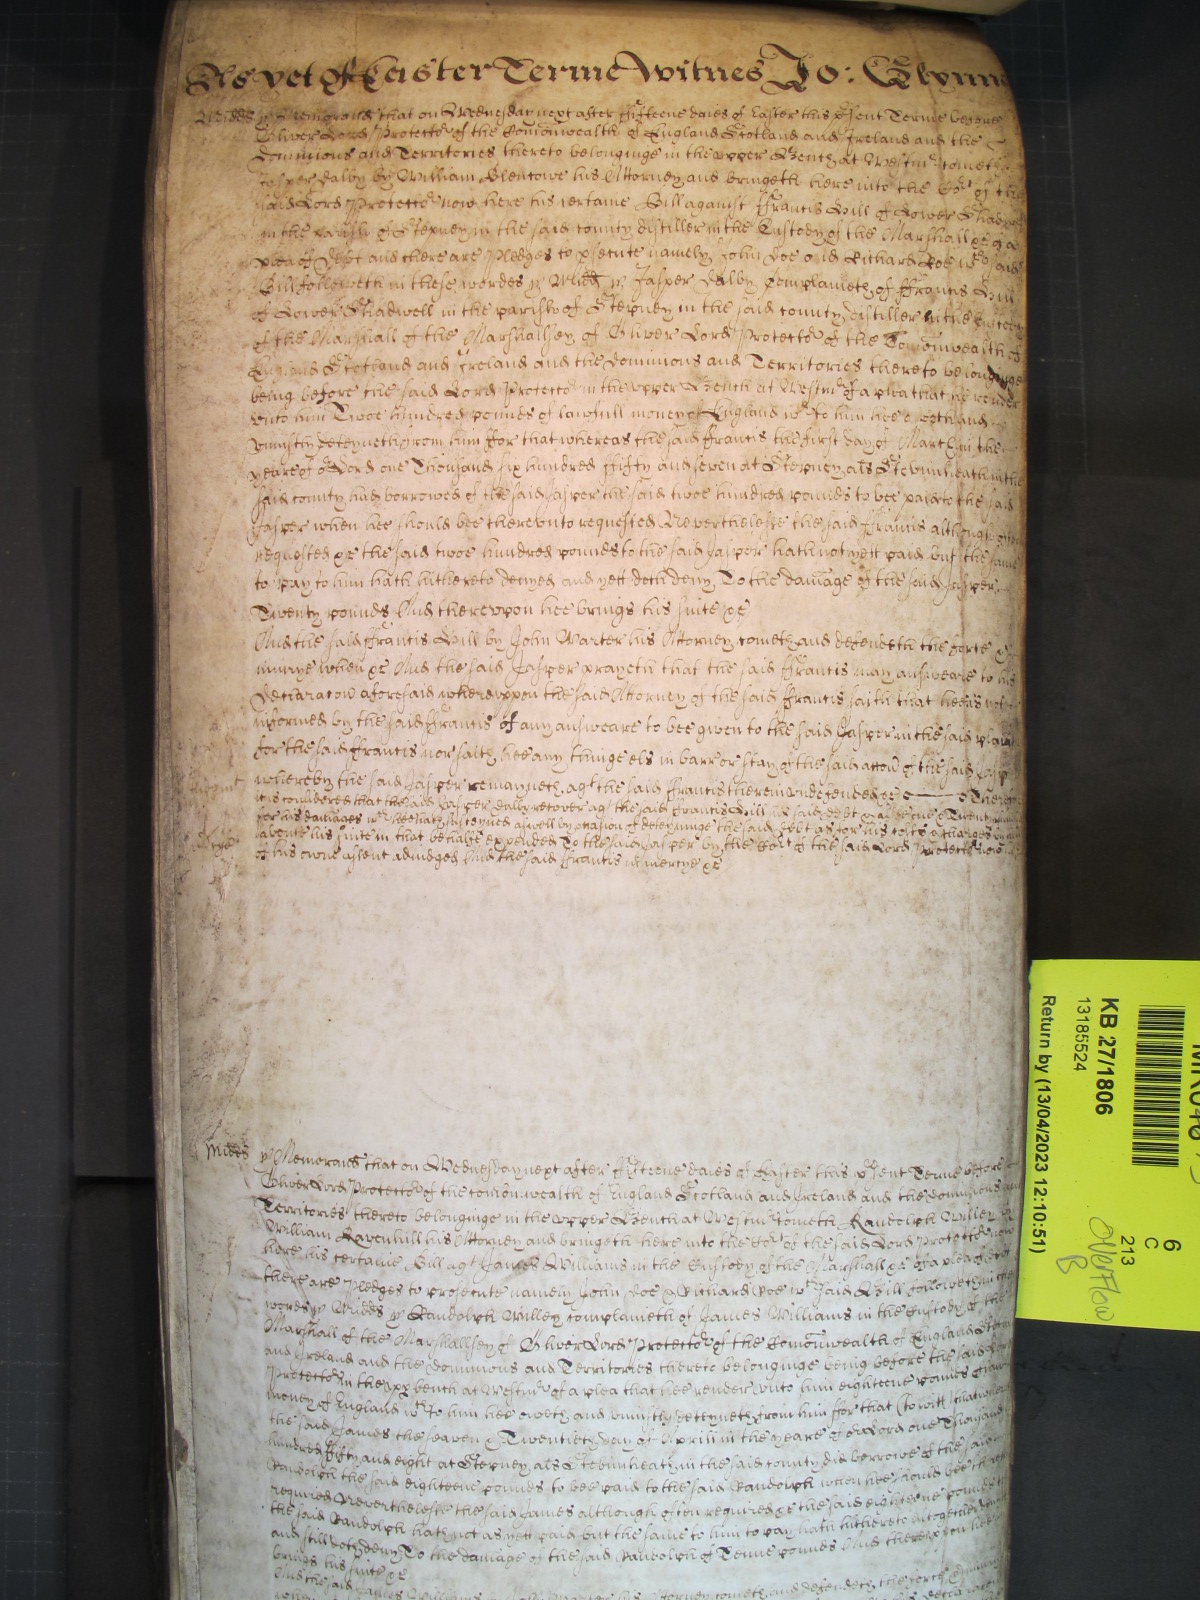 As yet of Easter Terme Witnes Jo: Glynne
Midds ss Memorand that on Wednesday next after fifteene daies of Easter this p'sent Terme before
Oliver Lord Protector of the Comonwealth of England Scotland and Ireland and the
Dominions and Territories thereto belonginge in the upper Bench at Westmr cometh
Jasper Dalby by William his Attorney and bringeth here into the Cort of the
said Lord Protector now here his certaine Bill against Francis Hill of Lower Shadwell
in the parish of Stepney in the said county distiller in the Custody of the Marshall &c of a
plea of Debt and there are Pledges to p'secute namely John Doe and Richard Roe wch said
Bill followeth in these wordes ss Midds ss Jasper Dalby complaineth of Francis Hill
of Lower Shadwell in the parish of Stepney in the said county distiller in the Custody
of the Marshall of the Marshallsey of Oliver Lord Protector of the Comonwealth of
England Scotland and Ireland and the Dominions and Territories thereto belonginge
being before the said Lord Protector in the upper Bench at Westmr of a plea that he render
unto him Twoe hundred pounds of lawfull money of England wch to him hee oweth and
uniustly deteyneth from him For that whereas the said Francis the first day of March in the
yeare of or Lord one Thousand six hundred fifty and seven at Stepney als Stebunheath in the
said county had borrowed of the said Jasper the said twoe hundred pounds to bee paid to the said
Jasper when hee should bee thereunto requested Neverthelesse the said Francis although often
requested &c the said twoe hundred pounds to the said Jasper hath not yett paid but the same
to pay to him hath hithereto denyed and yett doth deny To the damage of the said Jasper
Twenty pounds And thereupon hee brings his suite &c
And the said Francis Hill by John Warter his Attorney cometh and defendeth the force &
iniurye when &c And the said Jasper prayeth that the said Francis may answeare to his
Declaracon aforesaid whereuppon the said Attorney of the said Francis saith that hee is not
informed by the said Francis of any answeare to bee given to the said Jasper in the said plaint
for the said Francis nor saith hee any thinge els in barr or stay of the said accon of the said Jasper
whereby the said Jasper remayneth agt the said Francis therein undefended &c Therefore
it is considered that the said Jasper Dalby recover agt the said Francis Hill his said debt and
for his damages wch hee hath susteyned aswell by occasion of deteyninge the said debt as for his costs & charges by him
aboute his suite in that behalfe expended To the said Jasper by the Cort of the said Lord Protector now
of his owne assent adiudged And the said Francis in mercye &c
Midds ss Memorand that on Wednesday next after fifteene daies of Easter this p'sent Terme before
Oliver Lord Protector of the comonwealth of England Scotland and Ireland and the Dominions and
Territories thereto belonginge in the upper Bench at Westmr cometh Randolph Willey by
William Ravenhill his Attorney and bringeth here into the Cort of the said Lord Protector now
here his certaine Bill agt James Williams in the Custody of the Marshall &c of a plea of Debt
there are Pledges to prosecute namely John Doe & Richard Roe wch said Bill followeth in these
wordes ss Midds ss Randolph Willey complaineth of James Williams in the Custody of the
Marshall of the Marshallsey of Oliver Lord Protector of the Comonwealth of England Scotland
and Ireland and the Dominions and Territories thereto belonginge being before the said Lord
Protector in the upp bench at Westmr of a plea that hee render unto him eighteene pounds of lawfull
money of England wch to him hee oweth and uniustly deteyneth from him For that (to witt) that whereas
the said James the seaven & Twentieth day of Aprill in the yeare of or Lord one Thousand six
hundred fifty and eight at Stepney als Stebunheath in the said county did borrowe of the said
Randolph the said eighteene pounds to bee paid to the said Randolph when hee should bee thereunto
required Neverthelesse the said James although often required &c the said eighteene pounds to
the said Randolph hath not as yett paid but the same to him to pay hath hithereto altogether denyed
and still doth deny To the damage of the said Randolph of Tenne pounds And thereupon hee
brings his suite &c
And the said James Williams by Attorney cometh and defendeth the force &
6
C
213
Overflow
B
KB 27/1806
13185524
Return by (13/04/2023 12:10:51)